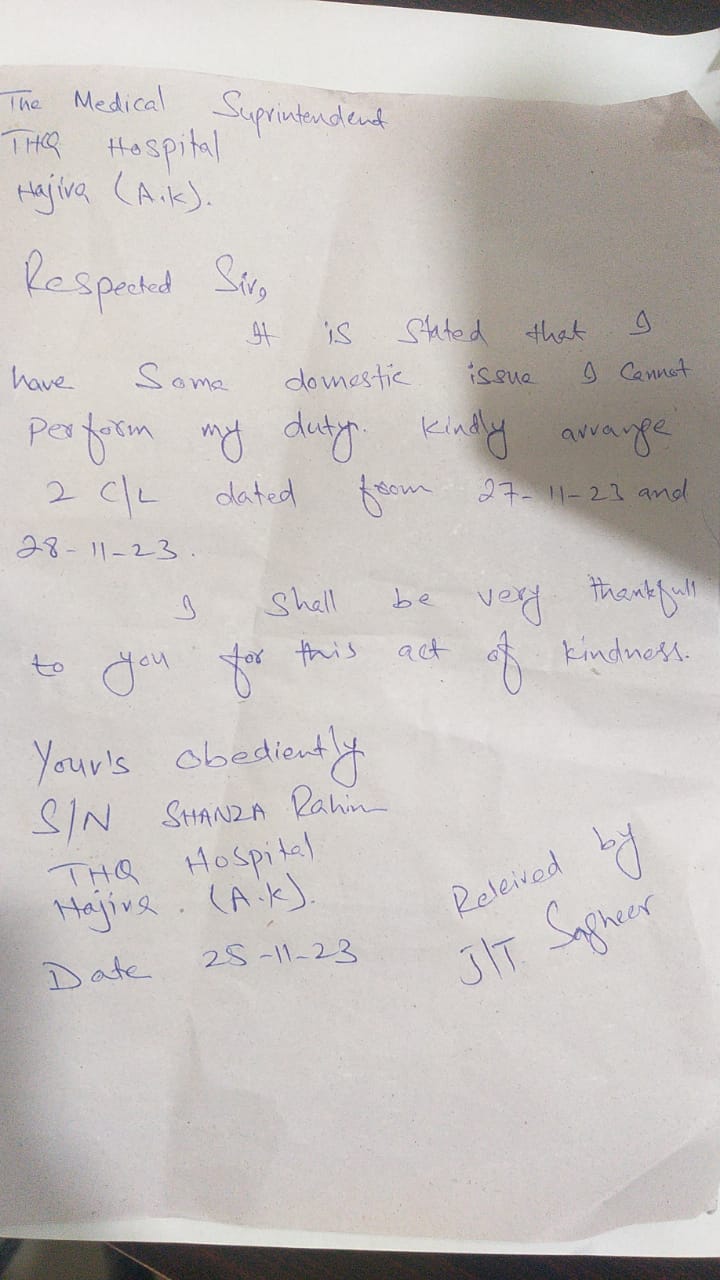 The Medical Suprintendend
THQ Hospital
Hajira (A.K).
Respected Sir,
It is Stated that I
have Some domestic issue I Cannot
Perform my duty. Kindly arrange
2 C/L dated from 27-11-23 and
28-11-23.
I Shall be very thankfull
to you for this act of kindness.
Your's Obediently
S/N SHANZA Rahim
THQ Hospital
Hajira. (A.K).
Date 25-11-23
Releived by
J/T. Sagheer